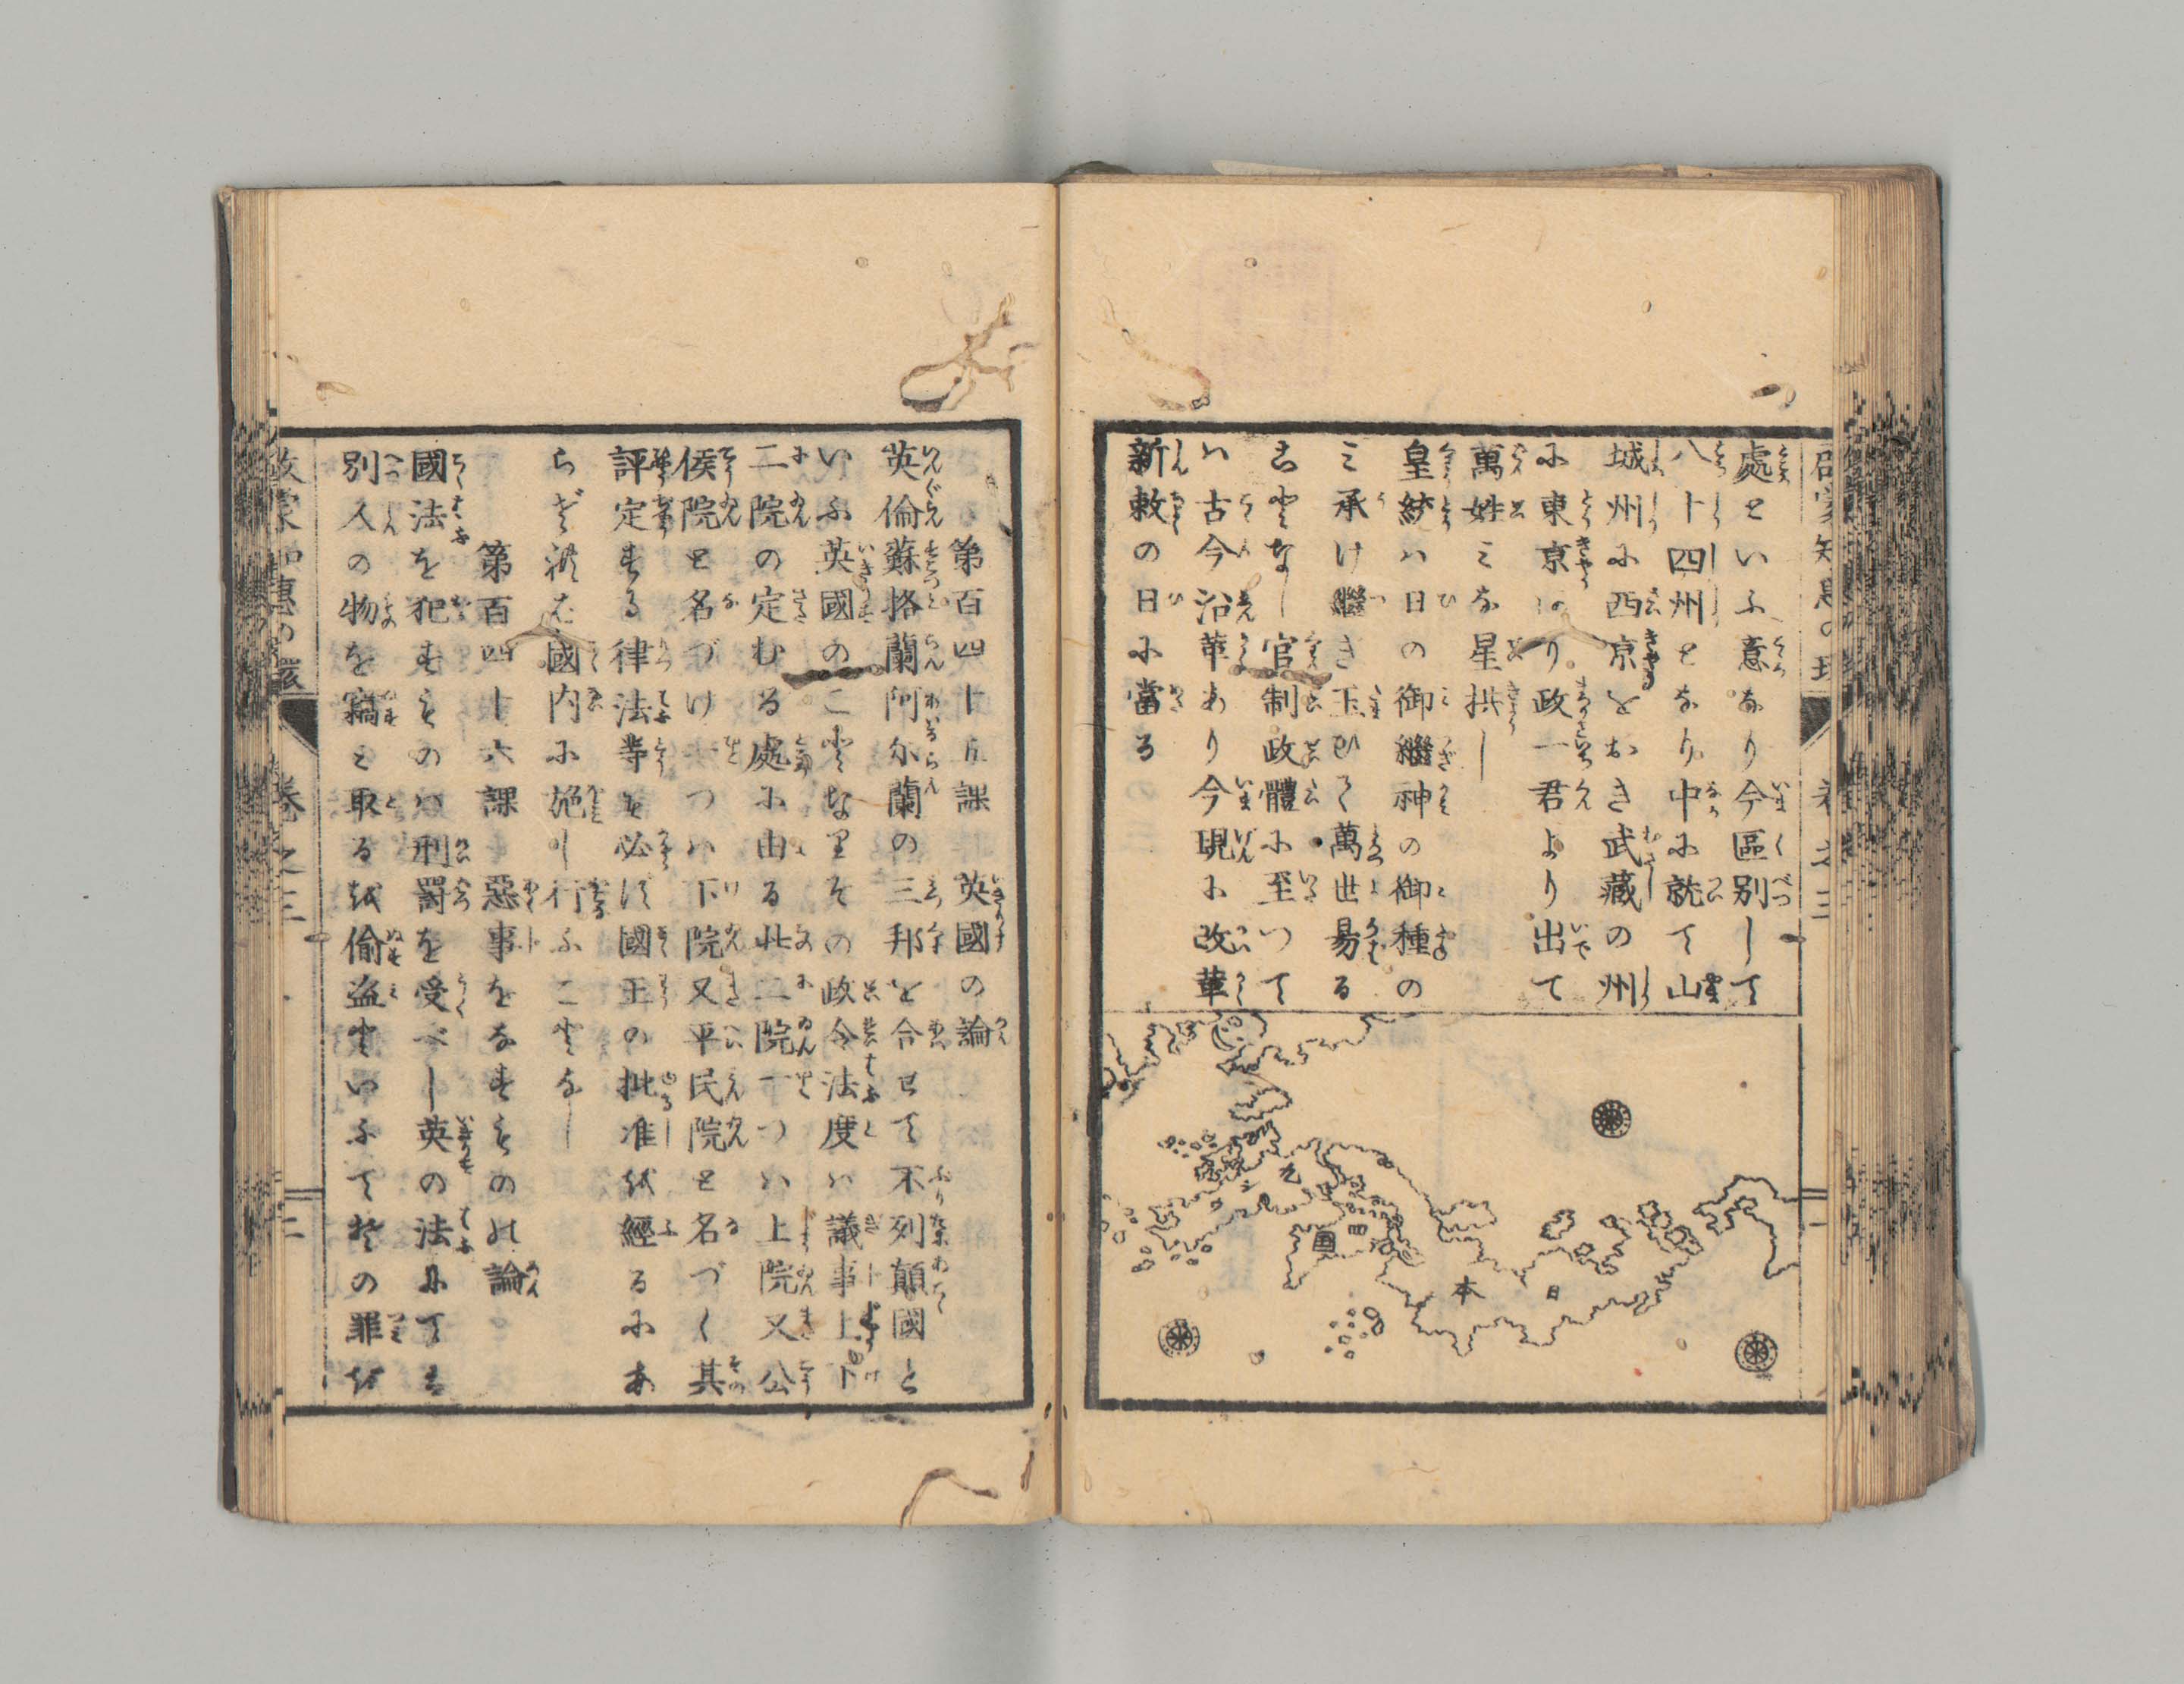 處といふ意なり今區別して
八十四州となり中に就て山
城州に西京をおき武藏の州
に東京あり政一君より出て
萬姓みな星拱し
皇統ハ日の御繼神の御種の
み承け繼き玉ひて萬世易る
ことなし官制政體に至つて
ハ古今沿革あり今現に改革
新敕の日に當る
九
四
國
本
日
第百四十五課 英國の論
英倫蘇挌蘭阿尓蘭の三邦を合せて不列顛國と
いふ英國のことなりその政令法度ハ議事上下
二院の定むる處に由る此二院一つハ上院又公
侯院と名づけ一つハ下院又平民院と名づく其
評定する律法等を必ず國王の批准を經るにあ
らざれば國内に施し行ふことなし
第百四十六課 惡事をなすものの論
國法を犯すものハ刑罰を受べし英の法にてハ
別人の物を竊み取るを偷盗といふて其の罪を
啟蒙知惠の環 卷之三 二